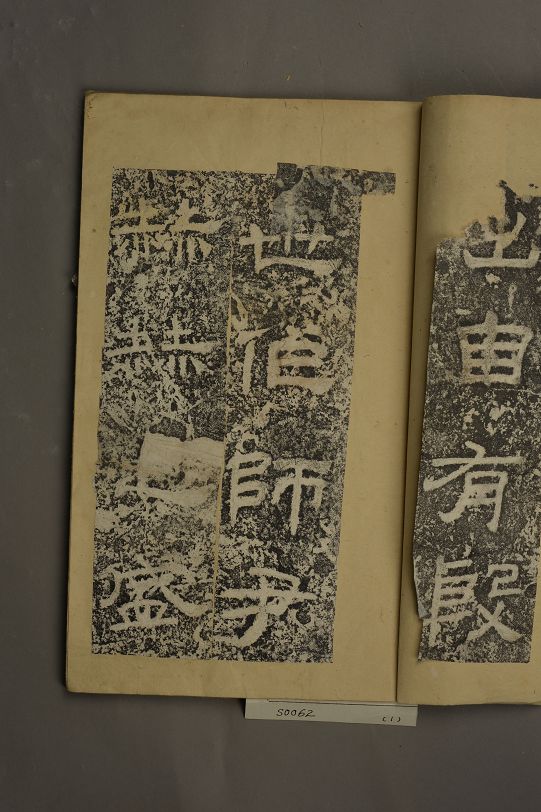 出由有殷
世作師尹
赫赫之盛
S0062 (1)